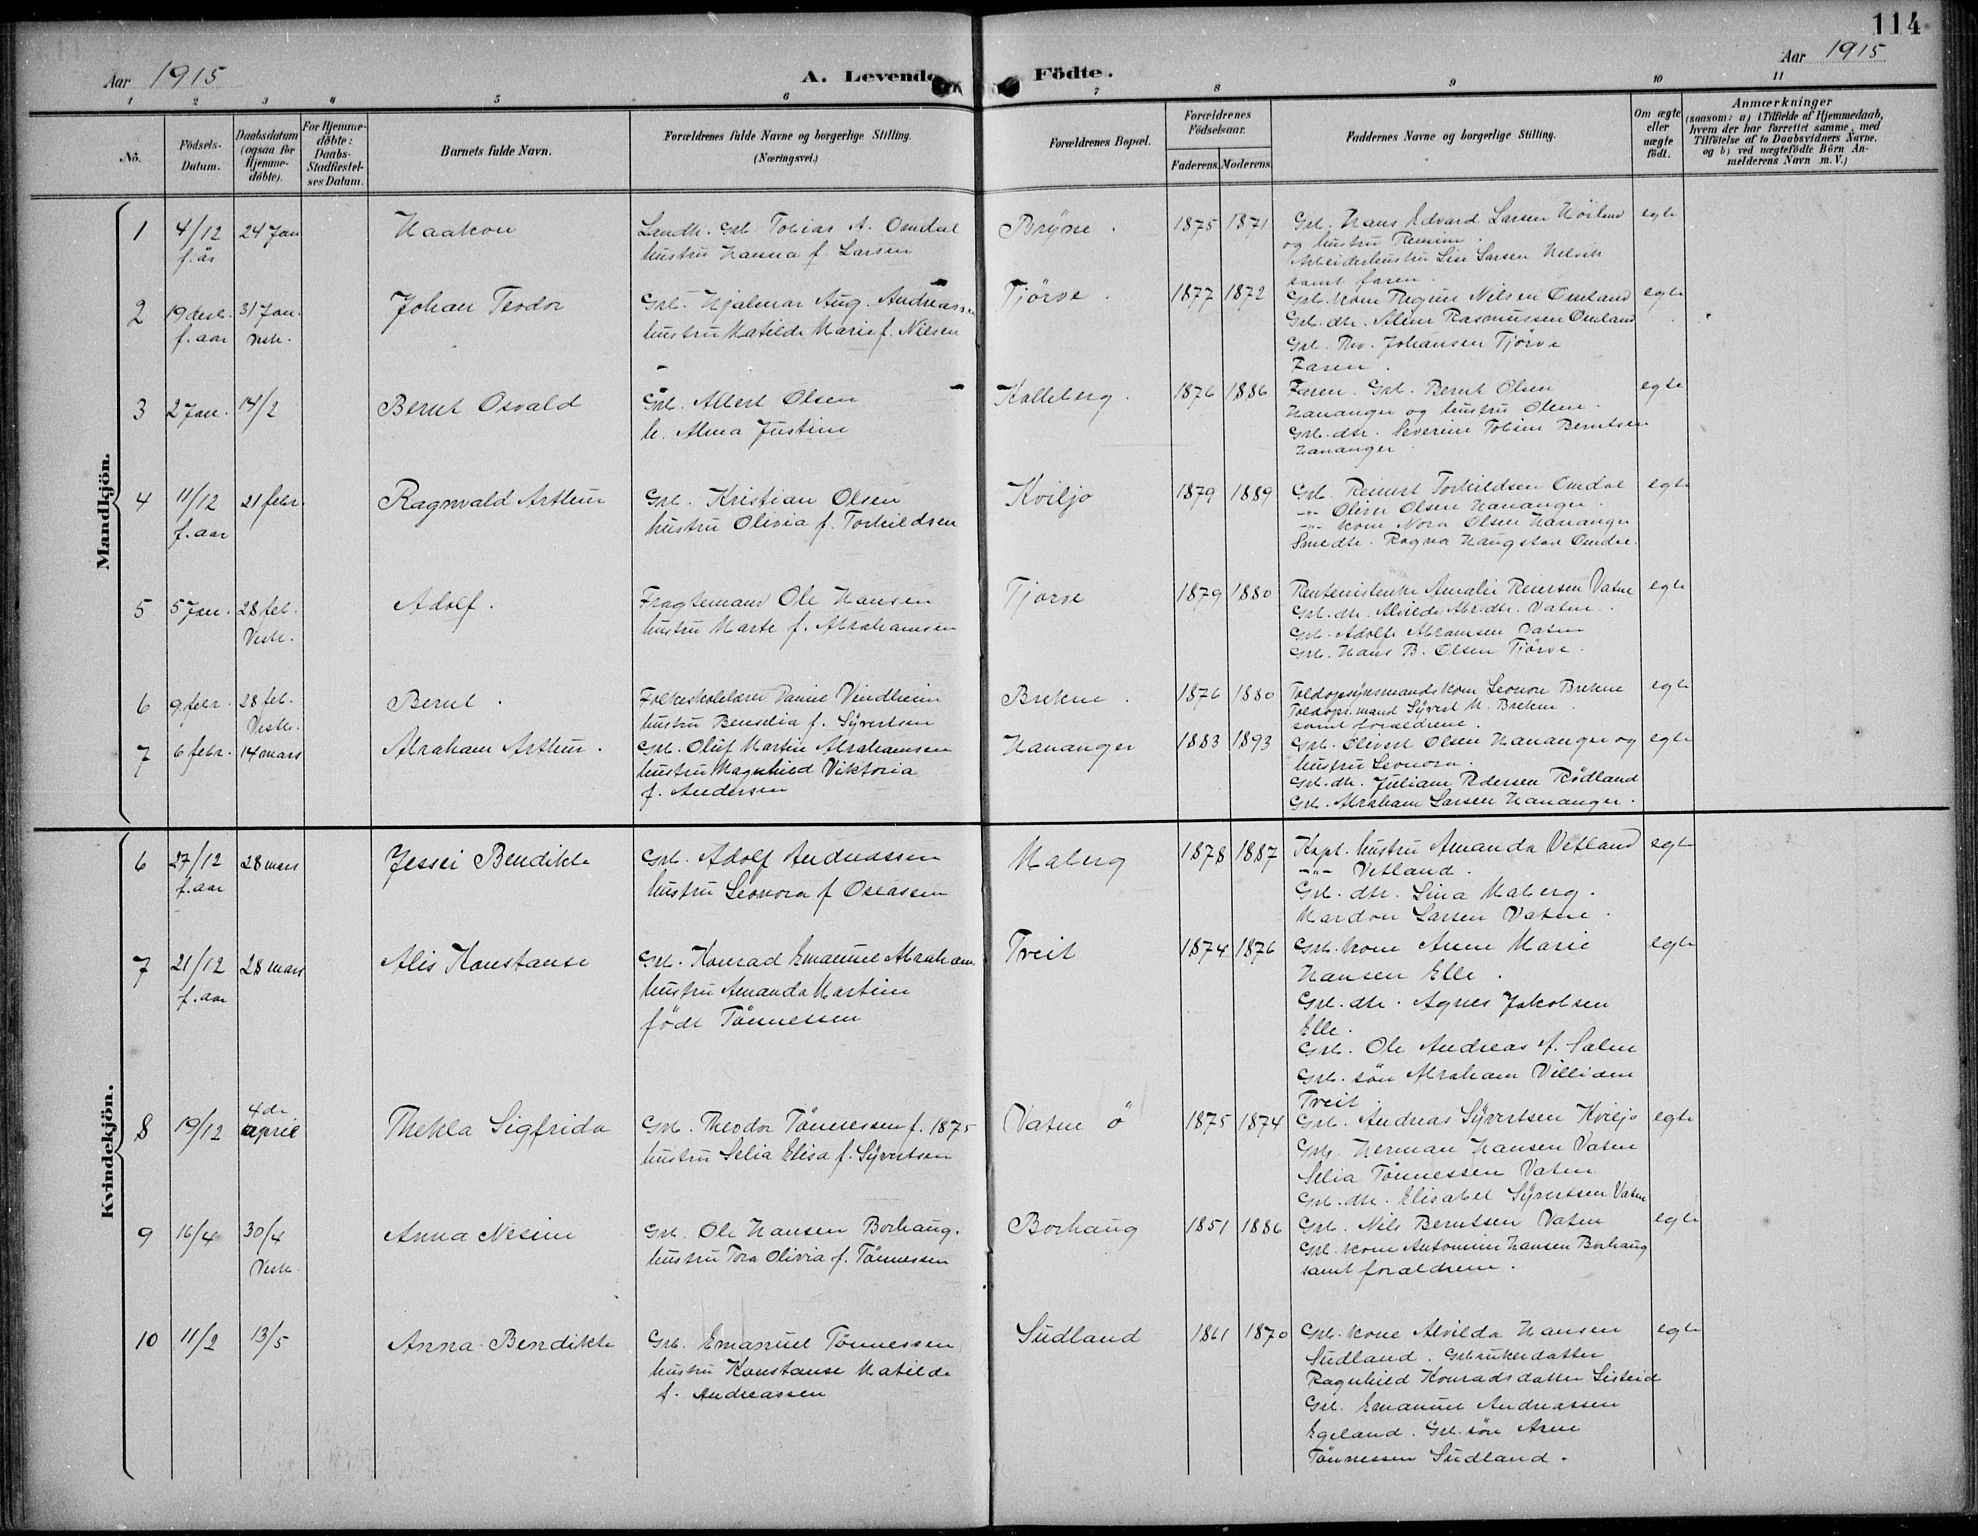 114
Aar 1915
A. Levende Födte.
Aar 1915
1 2 3 4 5 6 7 8 9 10 11
No.
Födsels-Datum.
Daabsdatum (ogsaa for Hjemme-döbte).
For Hjemme-döbte: Daabs-Stadfæstel-ses Datum.
Barnets fulde Navn.
Forældrenes fulde Navne og borgerlige Stilling.
(Næringsvei.)
Forældrenes Bopæl.
Forældrenes Födselsaar.
Faderens. Moderens.
Faddernes Navne og borgerlige Stilling.
Om ægte eller uægte födt.
Anmærkninger
(saasom: a) i Tilfælde af Hjemmedaab,
hvem der har forrettet samme, med
Tilföielse af to Daabsvidners Navne.
og b) ved uægtefödte Börn An-
melderens Navn m. V.)
Mandkjön.
1 4/12 f. år 24 Jan Haakon
Landh. Grb. Tobias A. Omdal
hustru Hanna f. Larsen
Bryne. 1875 1871
Grb. Hans Edvard Larsen Höiland
og hustru
Arbeiderhustru Lise Larsen Helvik
samt faren.
egte
2 19 desb. f. aar 31 Jan. Vestr. Johan Teodor
Grb. Hjalmar Aug. Andreassen
hustru Matilde Marie f. Nilsen
Tjörve. 1877 1872
Grb. kone Regine Nilsen Omland
Grb. dtr. Aline Rasmussen Omland
Grb. Thv. Johansen Tjörve
Faren.
egte
3 2 Jan. 14/2 Bernt Osvald
Grb. Albert Olsen
h. Alma Justine
Kalleberg. 1876 1886
Faren. Grb. Bernt Olsen
Hananger og hustru Oline.
Grb. dtr. Severine Tobine Berntsen
Hananger
egte
4 11/12 f. aar 21 febr. Ragnvald Arthur
Grb. Kristian Olsen
hustru Olivia f. Torkildsen
Kviljo 1879 1889
Grb. Reinert Torkildsen Omdal
-"- Oliver Olsen Hananger.
-"- kone Nora Olsen Hananger
Smeddtr. Ragna Haugstad Omdal.
egte
5 5 Jan. 28 feb. Vestr. Adolf.
Fragtemand Ole Hansen
hustru Marte f. Abrahamsen
Tjorve 1879 1880
Amalie Reinersen Vatne
Grb. dtr. Alvilde Abr.dtr. Vatne.
Grb. Adolf Abramsen Vatne
Grb. Hans B. Olsen Tjörve.
egte
6 9 febr. 28 feb. Vestr. Bernt.
Folkeskolelærer Daniel Vindheim
hustru Benedia f. Syvertsen
Brekne. 1876 1880
Toldopsynsmandskone Leonore Brekne
Toldops.mand Syvert M. Brekne.
samt foreldrene.
egte
7 6 febr. 14 mars Abraham Arthur.
Grb. Oluf Martin Abrahamsen
hustru Magnhild Viktoria
f. Andersen
Hananger 1883 1893
Grb. Olivert Olsen Hananger og
hustru Leonora.
Grb. dtr. Juliane Pedersen Rödland
Grb. Abraham Larsen Hananger.
egte
Kvindekjön.
6 27/12 f. aar 28 mars Jessei Bendikte
Grb. Adolf Andreassen
hustru Leonora f. Oseassen
Maberg 1878 1887
Kapt. hustru Amanda Vetland
-"- Vetland.
Grb. dtr. Lina Maberg.
Mardon Larsen Vatne.
egte
7 21/12 f. aar 28 mars Alis Konstanse
Grb. Konrad Emanuel Abraham.
hustru Amanda Martine
födt Tönnessen
Treit 1874 1876
Grb. kone Anne Marie
Hansen Elle.
Grb. dtr. Agnes Jakobsen
Elle.
Grb. Ole Andreas A.
Grb. sön Abraham
Treit.
egte
8 19/12 4de april Thekla Sigfrida
Grb. Theodor Tönnessen f. 1875
hustru Selia Elisa f. Syvertsen
Vatne ö 1875 1874
Grb. Andreas Syvertsen Kviljo
Grb. Herman Hansen Vatne
Selia Tönnessen Vatne
Grb. dtr. Elisabet Syvertsen Vatne
egte
9 16/4 30/4 Vestr. Anna Nesine
Grb. Ole Hansen Borhaug.
hustru Tora Olivia f. Tönnessen
Borhaug 1851 1886
Grb. Nils Berntsen Vatne
Grb. kone Antomine Hansen Borhaug
samt foraldrene.
egte
10 11/2 13/5 Anna Bendikte
Grb. Emanuel Tönnessen
hustru Konstanse Matilde
f. Andreassen
Sudland 1861 1870
Grb. kone Alvilda Hansen
Sudland. Grbrukerdatter
Ragnhild Konradsdatter
Grb. Emanuel Andreassen
Egeland. Grb. sön Arne
Tönnessen Sudland.
egte